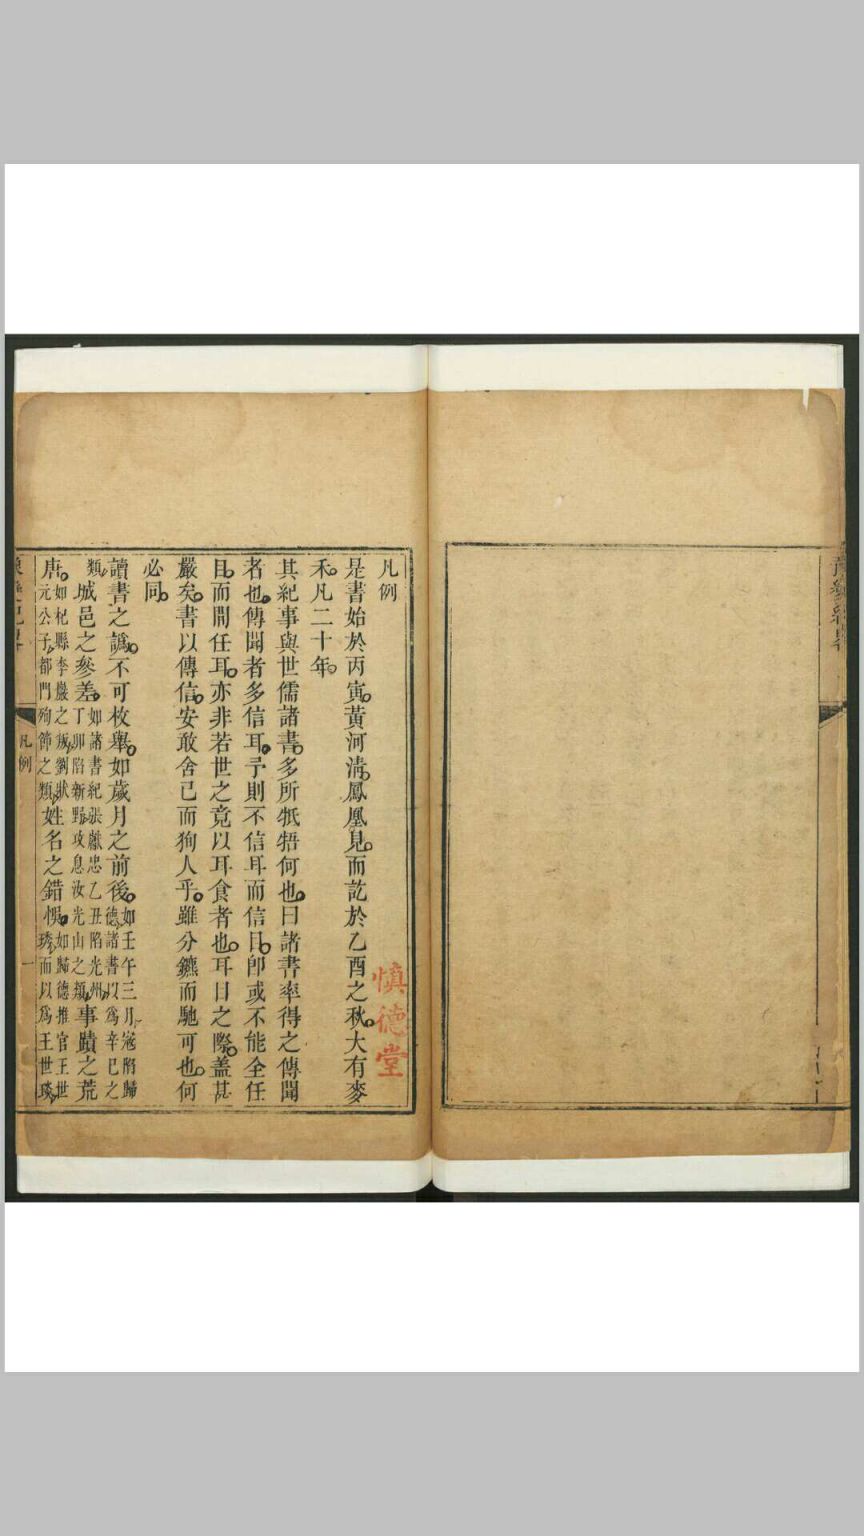 凡例
是書始於丙寅。黃河清。鳳凰見。而訖於乙酉之秋。大有麥
禾。凡二十年。
其紀事與世儒諸書。多所牴牾何也。曰諸書率得之傳聞
者也。傳聞者多信耳。予則不信耳而信目。卽或不能全任
目。而間任耳。亦非若世之竟以耳食者也。耳目之際。蓋甚
嚴矣。書以傳信。安敢舍己而狥人乎。雖分鑣而馳可也。何
必同。
讀書之譌。不可枚舉。如歲月之前後。如壬午三月寇陷歸
德諸書以爲辛巳之
類
城邑之參差。如諸書紀張獻忠乙丑陷光州
丁卯陷新野攻息汝光山之類
事蹟之荒
唐。如杞縣李巖之叛劉狀
元公子都門殉節之類
姓名之錯悞。如歸德推官王世
琇而以爲王世琰
凡例
一
慎德堂